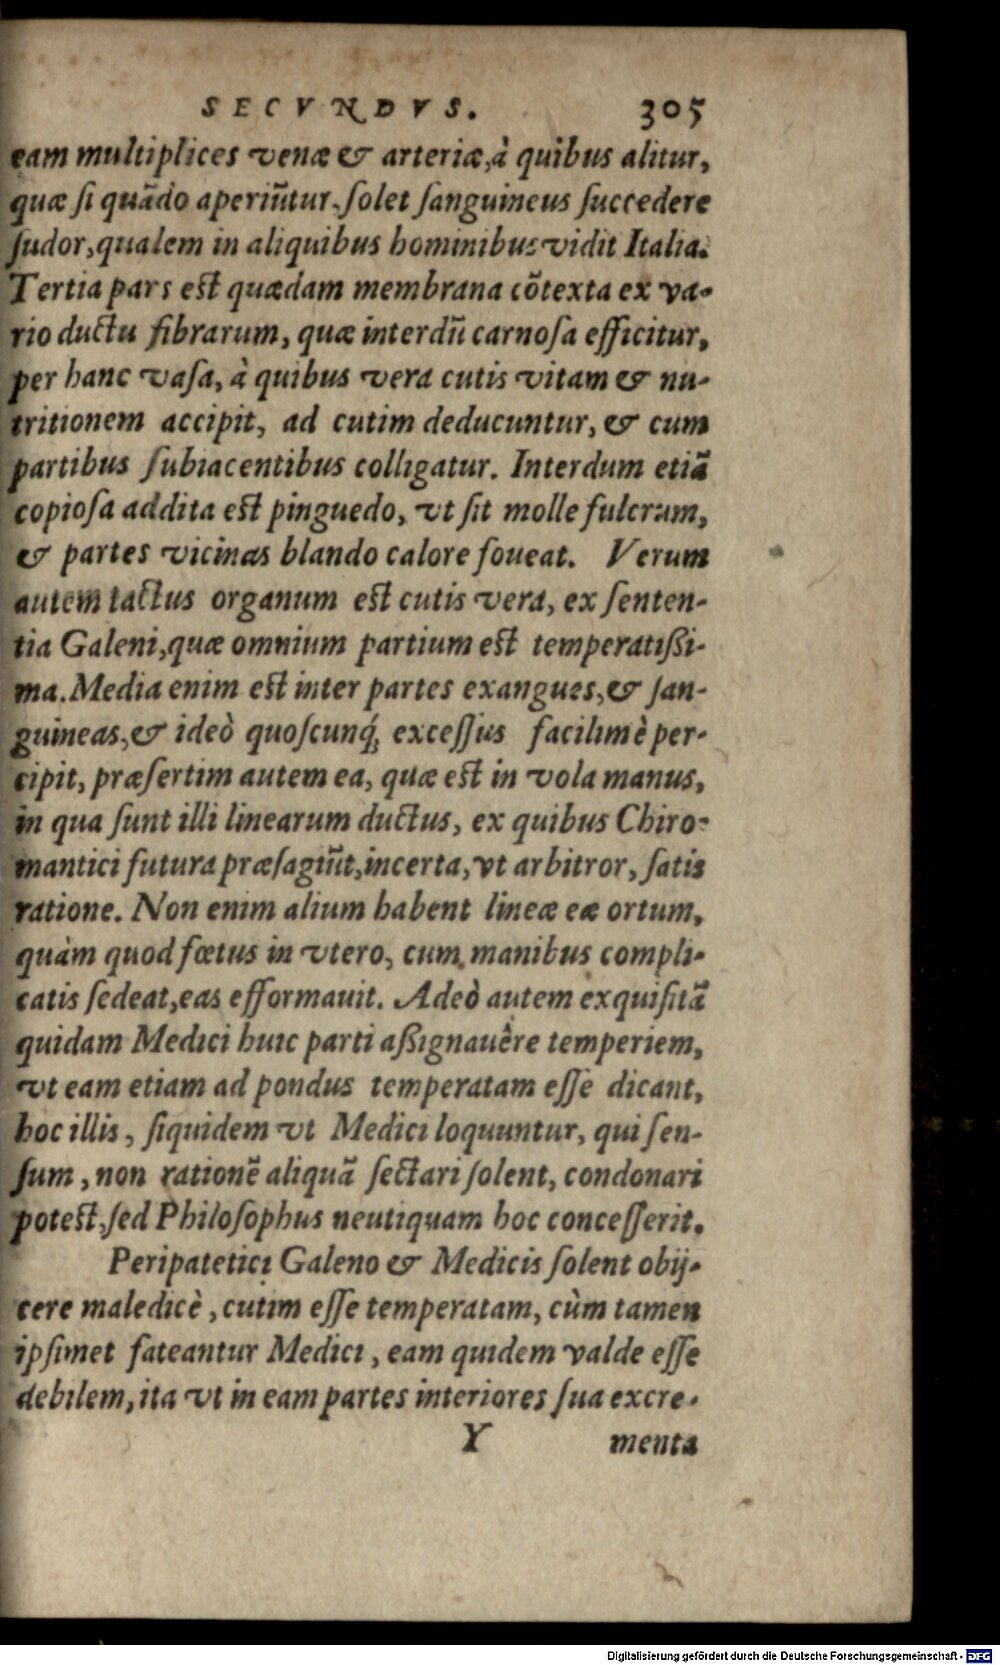 SECVNDVS. 305
eam multiplices venæ & arteriæ, à quibus alitur,
quæ si quãdo aperiũtur, solet sanguineus succedere
sudor, qualem in aliquibus hominibus vidit Italia.
Tertia pars est quædam membrana cõtexta ex va-
rio ductu fibrarum, quæ interdũ carnosa efficitur,
per hanc vasa, à quibus vera cutis vitam & nu-
tritionem accipit, ad cutim deducuntur, & cum
partibus subiacentibus colligatur. Interdum etiã
copiosa addita est pinguedo, vt sit molle fulcrum,
& partes vicinas blando calore foueat. Verum
autem tactus organum est cutis vera, ex senten-
tia Galeni, quæ omnium partium est temperatißi-
ma. Media enim est inter partes exangues, & san-
guineas, & ideò quoscunq́; excessus facilimè per-
cipit, præsertim autem ea, quæ est in vola manus,
in qua sunt illi linearum ductus, ex quibus Chiro-
mantici futura præsagiũt, incerta, vt arbitror, satis
ratione. Non enim alium habent lineæ eæ ortum,
quàm quod fœtus in vtero, cum manibus compli-
catis sedeat, eas efformauit. Adeò autem exquisitã
quidam Medici huic parti aßignauêre temperiem,
vt eam etiam ad pondus temperatam esse dicant,
hoc illis, siquidem vt Medici loquuntur, qui sen-
sum, non rationẽ aliquã sectari solent, condonari
potest, sed Philosophus neutiquam hoc concesserit.
Peripatetici Galeno & Medicis solent obij-
cere maledicè, cutim esse temperatam, cùm tamen
ipsimet fateantur Medici, eam quidem valde esse
debilem, ita vt in eam partes interiores sua excre-
Y menta
Digitalisierung gefördert durch die Deutsche Forschungsgemeinschaft - DFG